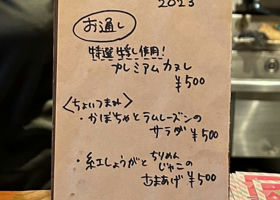 2023
お通し
特選牛すじ使用!
プレミアムカヌレ
¥500
<ちょいつまみ>
・かぼちゃとラムレーズンの
サラダ ¥500
・紅しょうがと ちりめん
じゃこの
さつまあげ ¥500